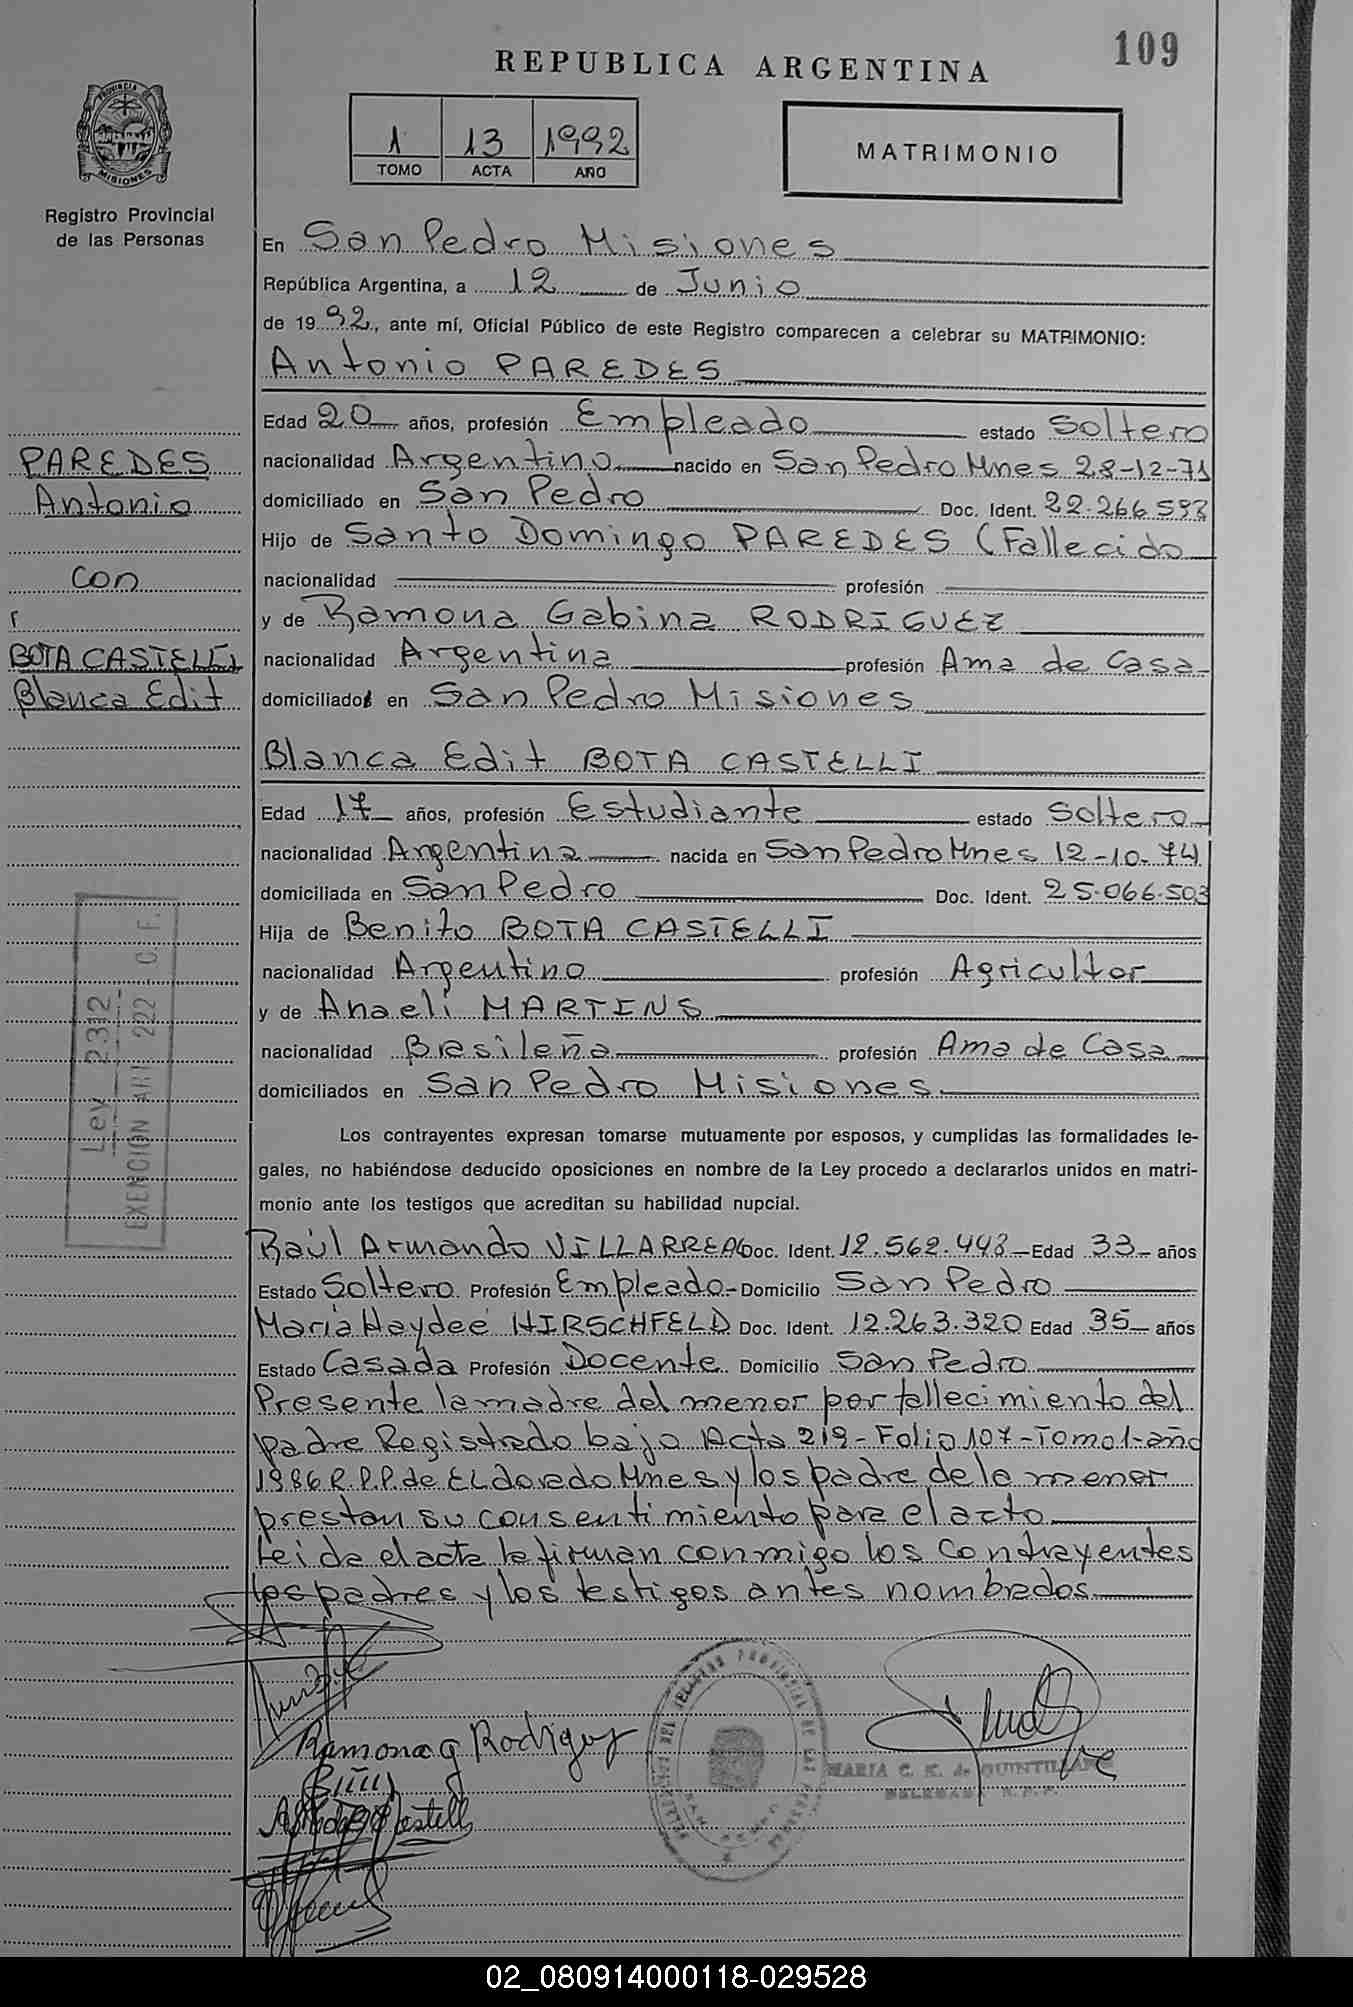 109
REPUBLICA ARGENTINA
PROVINCIA
MISIONES
Registro Provincial
de las Personas
1 13 1992
TOMO ACTA AÑO
MATRIMONIO
En San Pedro Misiones
República Argentina, a 12 de Junio
de 1992, ante mí, Oficial Público de este Registro comparecen a celebrar su MATRIMONIO:
Antonio PAREDES
Edad 20 años, profesión Empleado estado Soltero
nacionalidad Argentino nacido en San Pedro Mnes 28-12-71
domiciliado en San Pedro Doc. Ident. 22.266.593
Hijo de Santo Domingo PAREDES (Fallecido
nacionalidad profesión
y de Ramona Gabina RODRIGUEZ
nacionalidad Argentina profesión Ama de Casa
domiciliados en San Pedro Misiones
Blanca Edit BOTA CASTELLI
Edad 17 años, profesión Estudiante estado Soltero
nacionalidad Argentina nacida en San Pedro Mnes 12-10-74
domiciliada en San Pedro Doc. Ident. 25.066.503
Hija de Benito BOTA CASTELLI
nacionalidad Argentino profesión Agricultor
y de Anaeli MARTINS
nacionalidad Brasileña profesión Ama de Casa
domiciliados en San Pedro Misiones
PAREDES
Antonio
con
BOTA CASTELLI
Blanca Edit
Ley 2312
EXENCION ART 222 C.F.
Los contrayentes expresan tomarse mutuamente por esposos, y cumplidas las formalidades le-
gales, no habiéndose deducido oposiciones en nombre de la Ley procedo a declararlos unidos en matri-
monio ante los testigos que acreditan su habilidad nupcial.
Raúl Armando VILLARREAL Doc. Ident. 12.562.443 Edad 33 años
Estado Soltero Profesión Empleado Domicilio San Pedro
Maria Haydee HIRSCHFELD Doc. Ident. 12.263.320 Edad 35 años
Estado Casada Profesión Docente Domicilio San Pedro
Presente la madre del menor por fallecimiento del
padre Registrado bajo Acta 219-Folio 107-Tomo 1-año
1986 R.P.P. de ELdorado Mnes y los padre de la menor
prestan su consentimiento para el acto
Leida el acta la firman conmigo los contrayentes
los padres y los testigos antes nombrados
Ramona G Rodriguez
MARIA C. K. de QUINTILLAN
DELEGADA R.P.P.
02_080914000118-029528